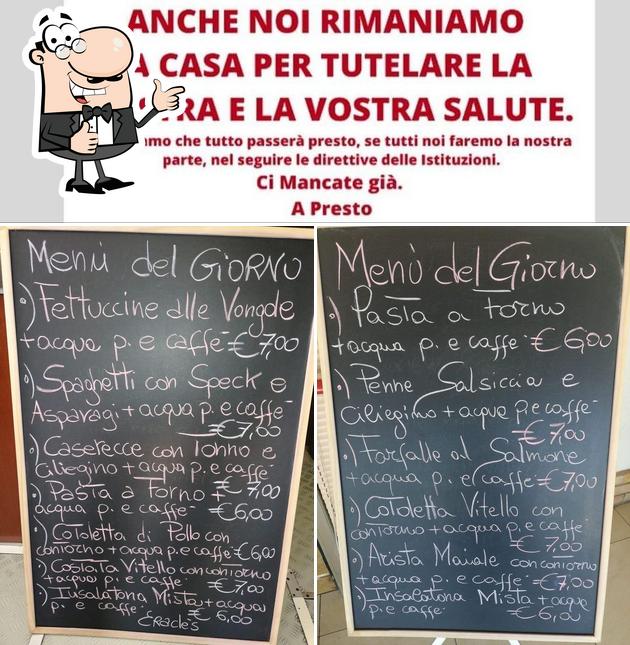 ANCHE NOI RIMANIAMO
A CASA PER TUTELARE LA
TRA E LA VOSTRA SALUTE.
mo che tutto passerà presto, se tutti noi faremo la nostra
parte, nel seguire le direttive delle Istituzioni.
Ci Mancate già.
A Presto
Menù del GIORNO
Fettuccine alle Vongole
+ acqua p. e caffè € 7,00
Spaghetti con Speck e
Asparagi + acqua p. e caffè
€ 7,00
Caserecce con Tonno e
Ciliegino + acqua p. e caffè
€ 7,00
Pasta a Forno +
acqua p. e caffè € 6,00
Cotoletta di Pollo con
contorno + acqua p. e caffè € 6,00
Costata Vitello con contorno
+ acqua p. e caffè € 7,00
Insalatona Mista + acqua
p. e caffè € 6,00
Eracles
Menù del Giorno
Pasta a forno
+ acqua p. e caffè € 6,00
Penne Salsiccia e
Ciliegino + acqua p. e caffè
€ 7,00
Farfalle al Salmone
+ acqua p. e caffè € 7,00
Cotoletta Vitello con
contorno + acqua p. e caffè
€ 7,00
Arista Maiale con contorno
+ acqua p. e caffè € 7,00
Insalatona Mista + acqua
p. e caffè € 6,00